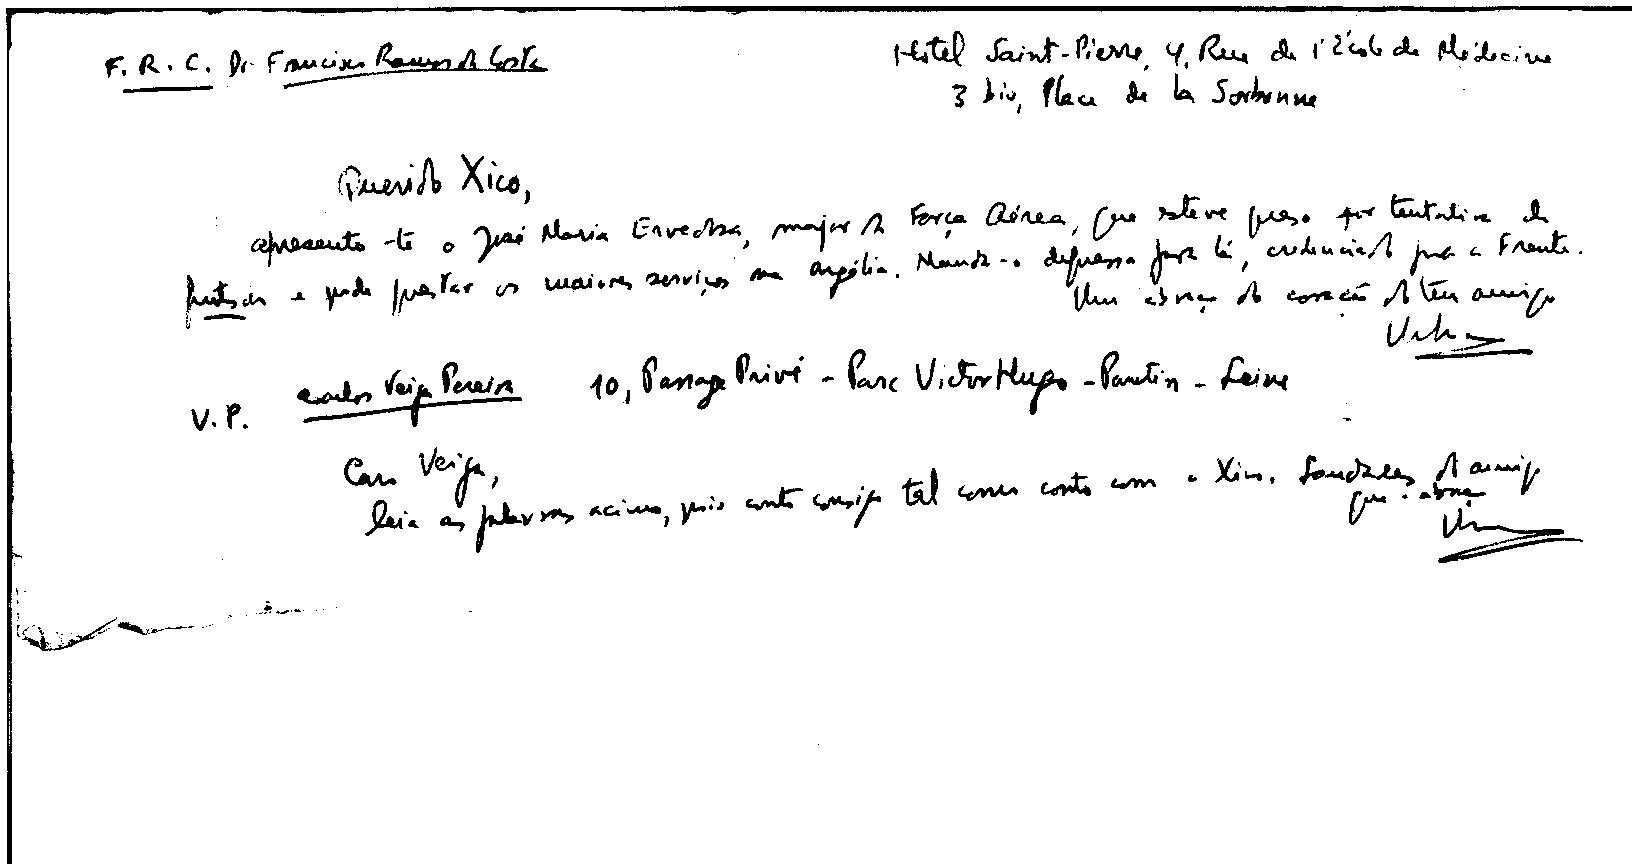 F. R. C. Dr Francisco Ramos da Costa
Hotel Saint-Pierre, 4, Rue de l'École de Médecine
3 bis, Place de la Sorbonne
Querido Xico,
apresento-te o José Maria Ervedosa, major da Força Aérea, que esteve preso por tentativa de
e pode prestar os maiores serviços na Argélia. Manda-o depressa para lá, credenciado para a Frente.
Um abraço do coração do teu amigo
V.P. Carlos Veiga Pereira 10, Passage Privé - Parc Victor Hugo - Pantin - Seine
Caro Veiga,
leia as palavras acima, pois conto consigo tal como conto com o Xico. Saudades do amigo
que o abraça